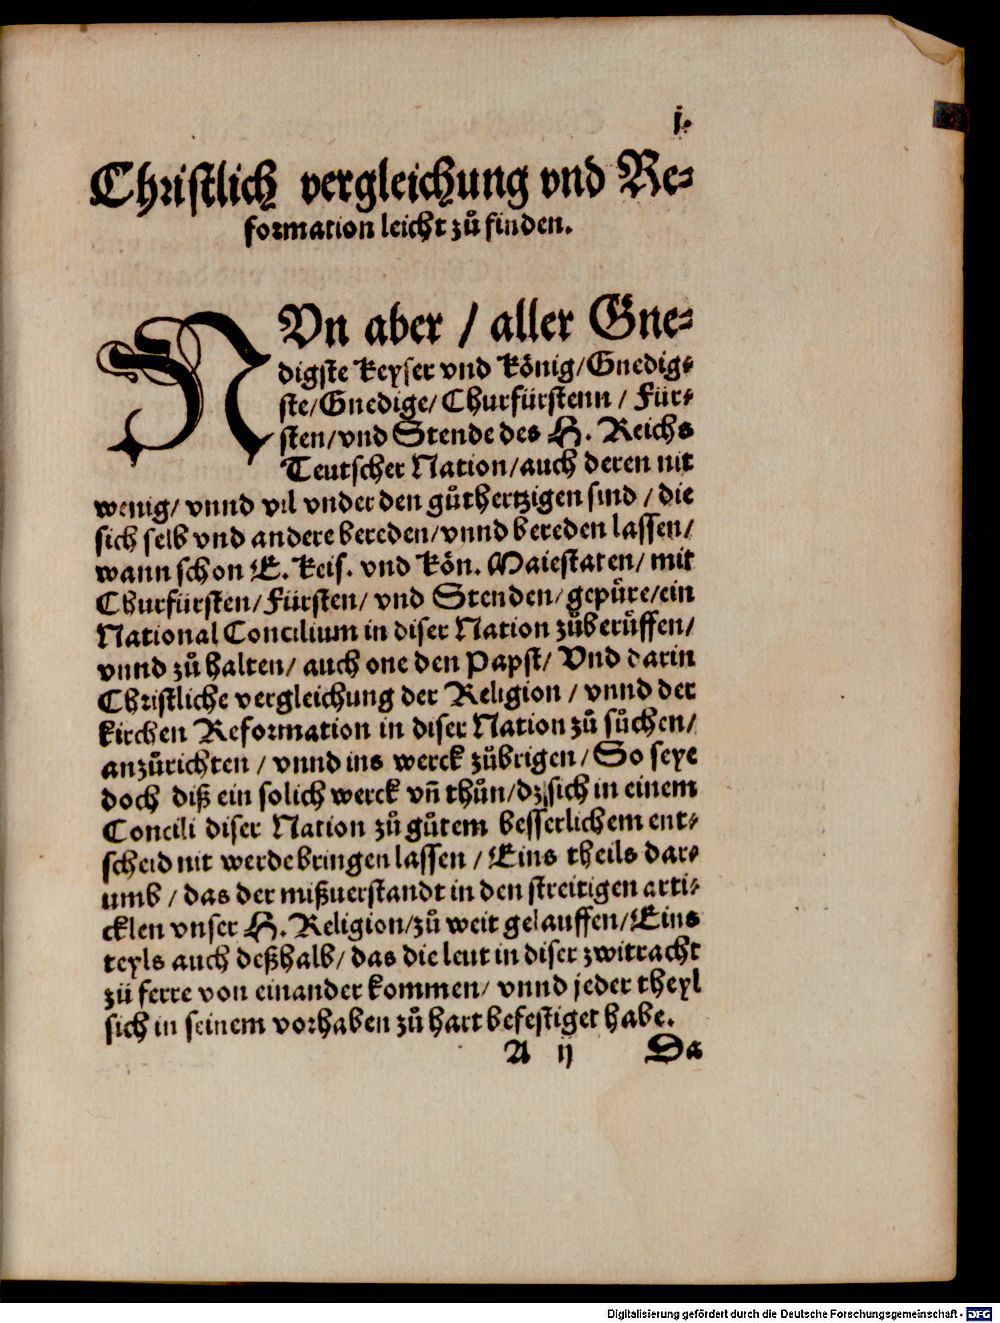 j.
Christlich vergleichung vnd Re⸗
formation leicht zů finden.
NVn aber / aller Gne⸗
digste Keyser vnd König/ Gnedig⸗
ste/ Gnedige/ Churfürstenn / Für⸗
sten/ vnd Stende des H. Reichs
Teutscher Nation/ auch deren nit
wenig/ vnnd vil vnder den gůthertzigen sind / die
sich selb vnd andere bereden/ vnnd bereden lassen/
wann schon E. Keis. vnd Kön. Maiestaten/ mit
Churfürsten/ Fürsten/ vnd Stenden/ gepüre/ ein
National Concilium in diser Nation zůberůffen/
vnnd zů halten/ auch one den Papst/ Vnd darin
Christliche vergleichung der Religion / vnnd der
kirchen Reformation in diser Nation zů sůchen/
anzůrichten / vnnd ins werck zůbrigen/ So seye
doch diß ein solich werck vñ thůn/ dz sich in einem
Concili diser Nation zů gůtem besserlichem ent⸗
scheid nit werde bringen lassen / Eins theils dar⸗
umb / das der mißuerstandt in den streitigen arti⸗
cklen vnser H. Religion/ zů weit gelauffen/ Eins
teyls auch deßhalb/ das die leut in diser zwitracht
zů ferre von einander kommen/ vnnd jeder theyl
sich in seinem vorhaben zů hart befestiget habe.
A ij Da
Digitalisierung gefördert durch die Deutsche Forschungsgemeinschaft - DFG